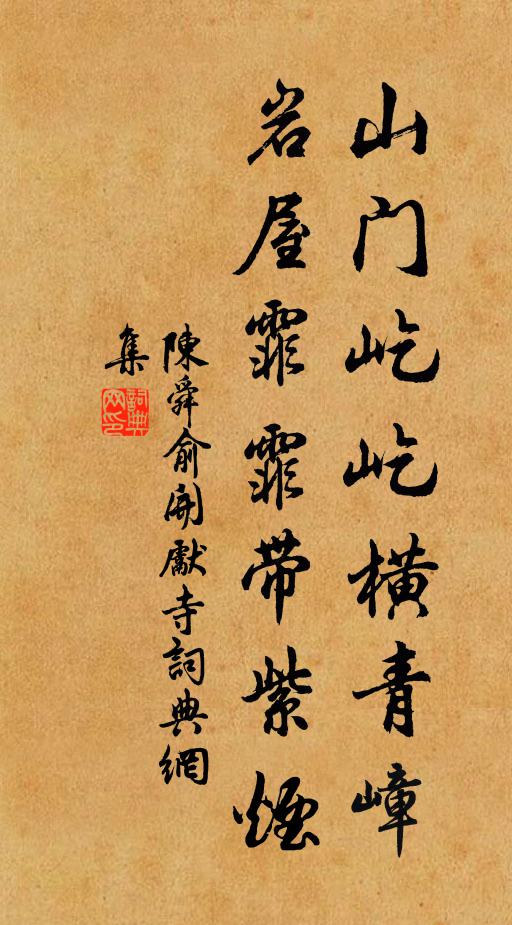 山门屹屹横青嶂
岩屋霏霏带紫煙
陳舜俞開獻寺詞典網
集
詞典
网印